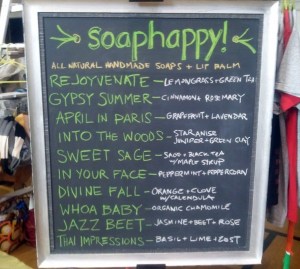 soaphappy!
ALL NATURAL HANDMADE SOAPS + LIP BALM
REJOYVENATE — LEMONGRASS + GREEN TEA
GYPSY SUMMER — CINNAMON & ROSEMARY
APRIL IN PARIS — GRAPEFRUIT + LAVENDAR
INTO THE WOODS — STAR ANISE
JUNIPER + GREEN CLAY
SWEET SAGE — SAGE + BLACK TEA
W/MAPLE SYRUP
IN YOUR FACE — PEPPERMINT + PEPPERCORN
DIVINE FALL — ORANGE + CLOVE
W/CALENDULA
WHOA BABY — ORGANIC CHAMOMILE
JAZZ BEET — JASMINE + BEET + ROSE
THAI IMPRESSIONS — BASIL + LIME + ZEST